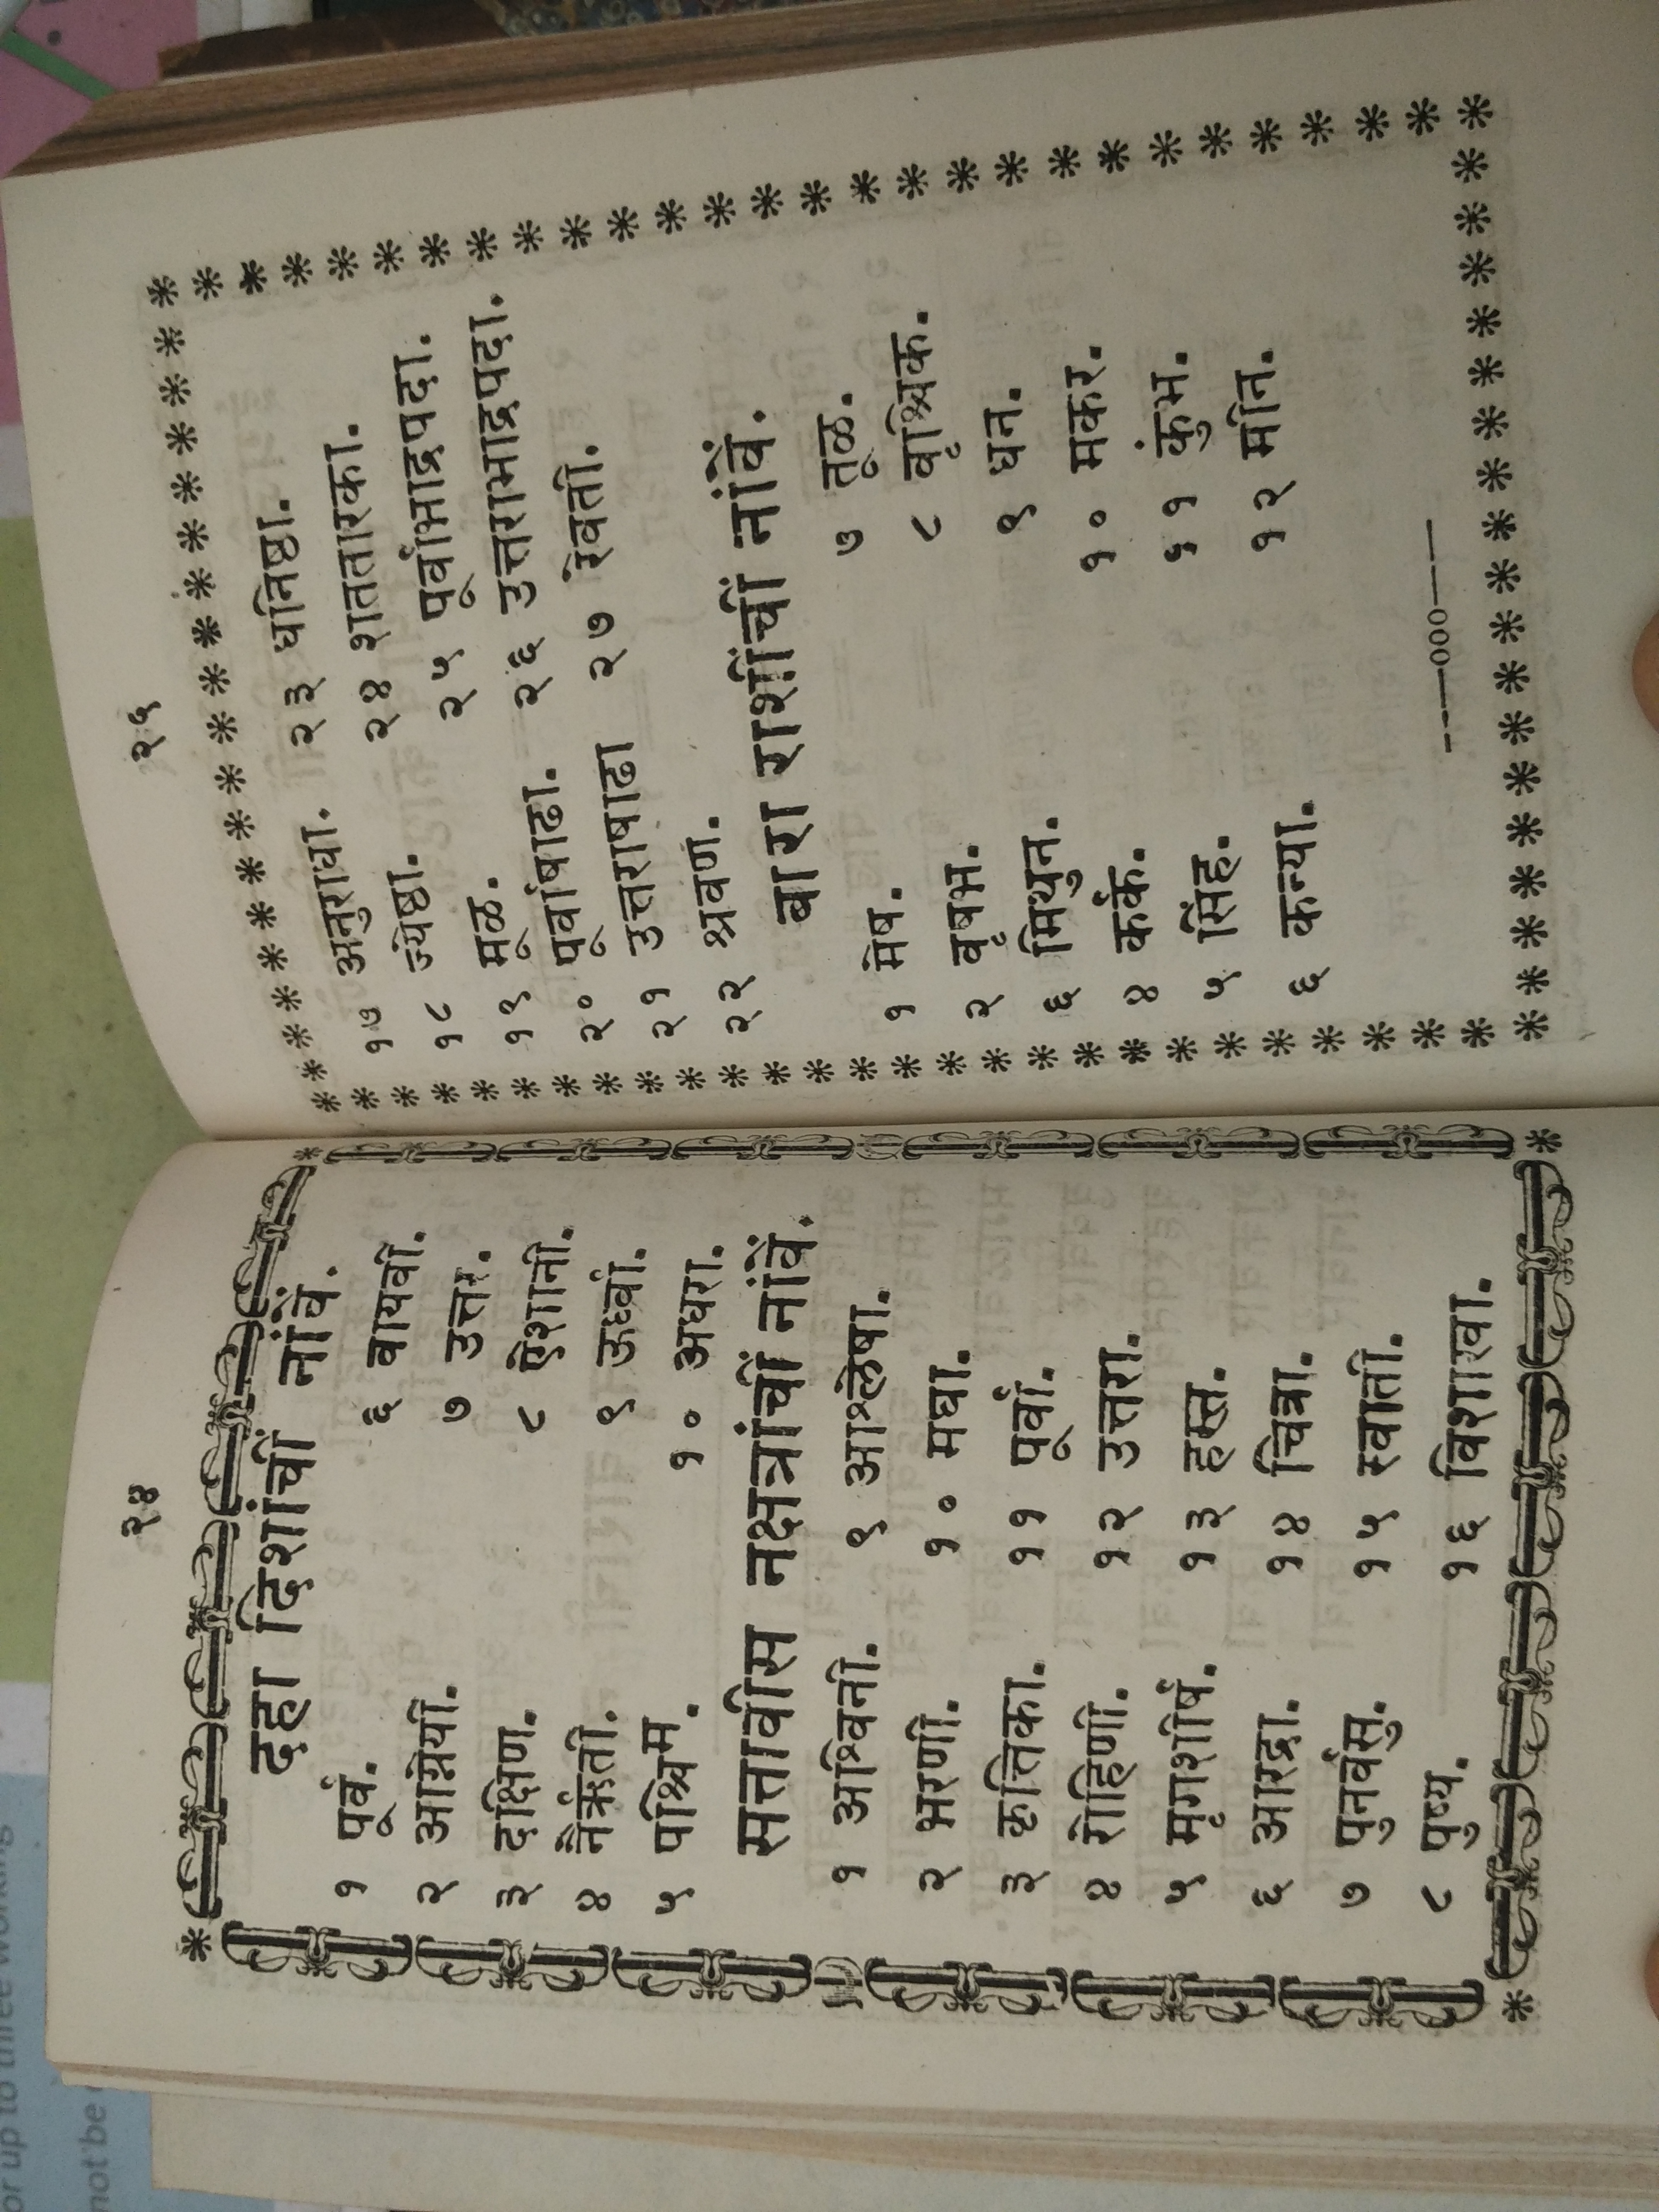 २४
दहा दिशांचीं नांवें.
१ पूर्व. ६ वायवी.
२ आग्नेयी. ७ उत्तर.
३ दक्षिण. ८ ईशानी.
४ नैर्ऋती. ९ ऊर्ध्वा.
५ पश्चिम. १० अधरा.
सत्तावीस नक्षत्रांचीं नांवें.
१ अश्विनी. ९ आश्लेषा.
२ भरणी. १० मघा.
३ कृत्तिका. ११ पूर्वा.
४ रोहिणी. १२ उत्तरा.
५ मृगशीर्ष. १३ हस्त.
६ आरद्रा. १४ चित्रा.
७ पुनर्वसु. १५ स्वाती.
८ पुष्य. १६ विशाखा.
२५
१७ अनुराधा. २३ धनिष्ठा.
१८ ज्येष्ठा. २४ शततारका.
१९ मूळ. २५ पूर्वाभाद्रपदा.
२० पूर्वाषाढा. २६ उत्तराभाद्रपदा.
२१ उत्तराषाढा २७ रेवती.
२२ श्रवण.
बारा राशींचीं नांवें.
१ मेष. ७ तूळ.
२ वृषभ. ८ वृश्चिक.
६ मिथुन. ९ धन.
४ कर्क. १० मकर.
५ सिंह. ११ कुंभ.
६ कन्या. १२ मीन.
or up to three working
not be